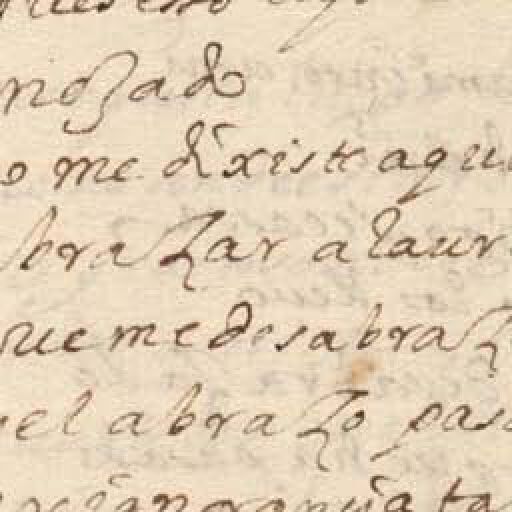 nozado
o me dixiste aqu
brazar a laur
que me desabraz
el abrazo pas